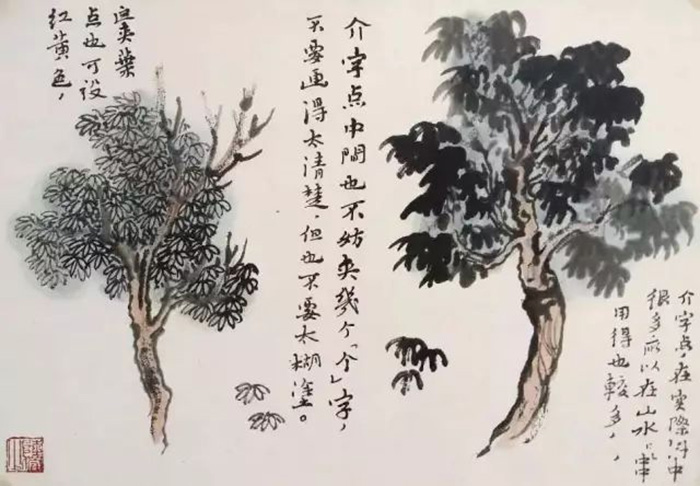 介字点，在实際中
很多所以在山水中
用得也較多，
介字点中間也不妨夾幾个「个」字，
不要画得太清楚，但也不要太糊塗。
夾葉
点也可设
红黄色，